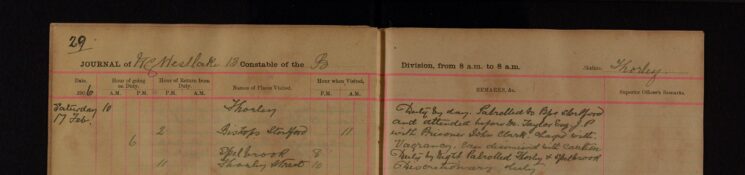 29
JOURNAL of W G Westlake 13 Constable of the B
Division, from 8 a.m. to 8 a.m. Station Thorley
Date, 1906 Hour of going on Duty. Hour of Return from Duty. Names of Places Visited. Hour when Visited. REMARKS, &c. Superior Officer's Remarks.
A.M. P.M. P.M. A.M. P.M. A.M.
Saturday 10 Thorley Duty by day. Patrolled to Bps Stortford
17 Feb. and attended before Taylor Esq J.P.
2 Bishops Stortford 11 with Prisoner John Clark. Charge with
6 Vagrancy. Case dismissed with caution
Spelbrook 8 Duty by Night Patrolled Thorley & Spelbrook
11 Thorley Street 10 Discretionary Duty